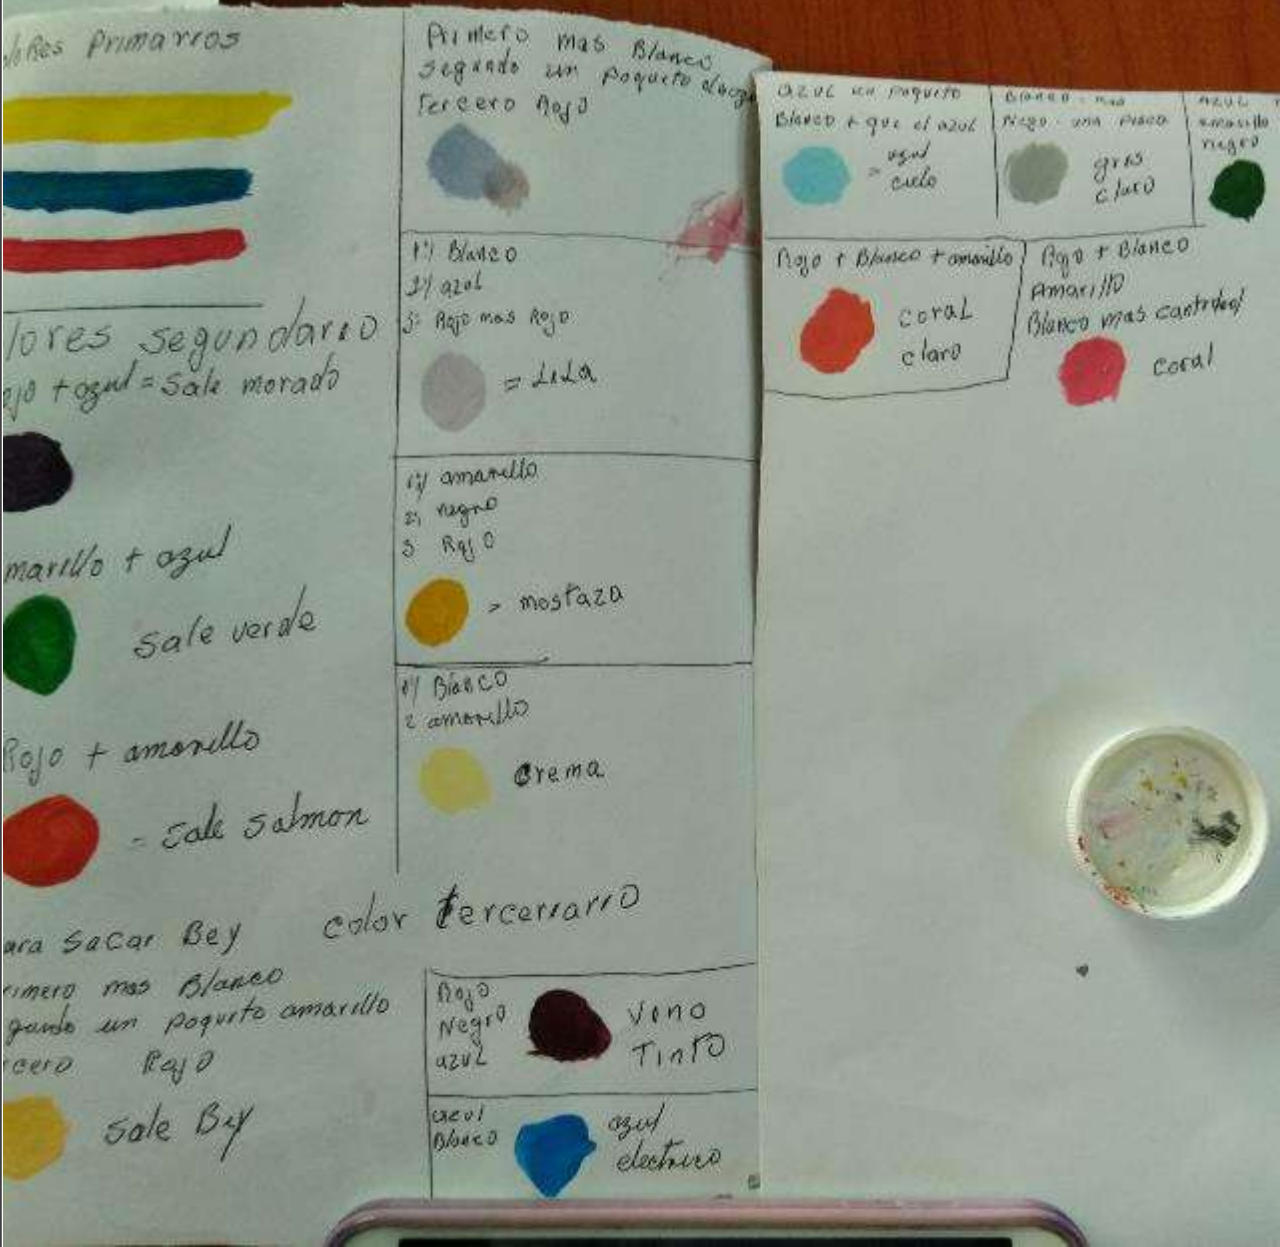 Primarios
lores segundario
+ azul = Sale morado
marillo + azul
Sale verde
Rojo + amarillo
= sale salmon
ara Sacar Bey
rimero mas Blanco
gundo un poquito amarillo
rcero Rojo
Sale Bey
Primero mas Blanco
segundo un poquito
Tercero Rojo
1º) Blanco
2) azul
3- Rojo mas Rojo
= LiLa
1) amarillo
2) negro
3 Rojo
= mostaza
1) Blanco
2 amarillo
crema
color tercerrario
Rojo
Negro
azul
Vino
Tinto
azul
Blanco
azul
electrico
azul un poquito
Blanco + que el azul
= azul
cielo
Blanco - mas
Negro - una pisca
gris
claro
azul
amarillo
negro
Rojo + Blanco + amarillo
coral
claro
Rojo + Blanco
Amarillo
Blanco mas cantidad
coral